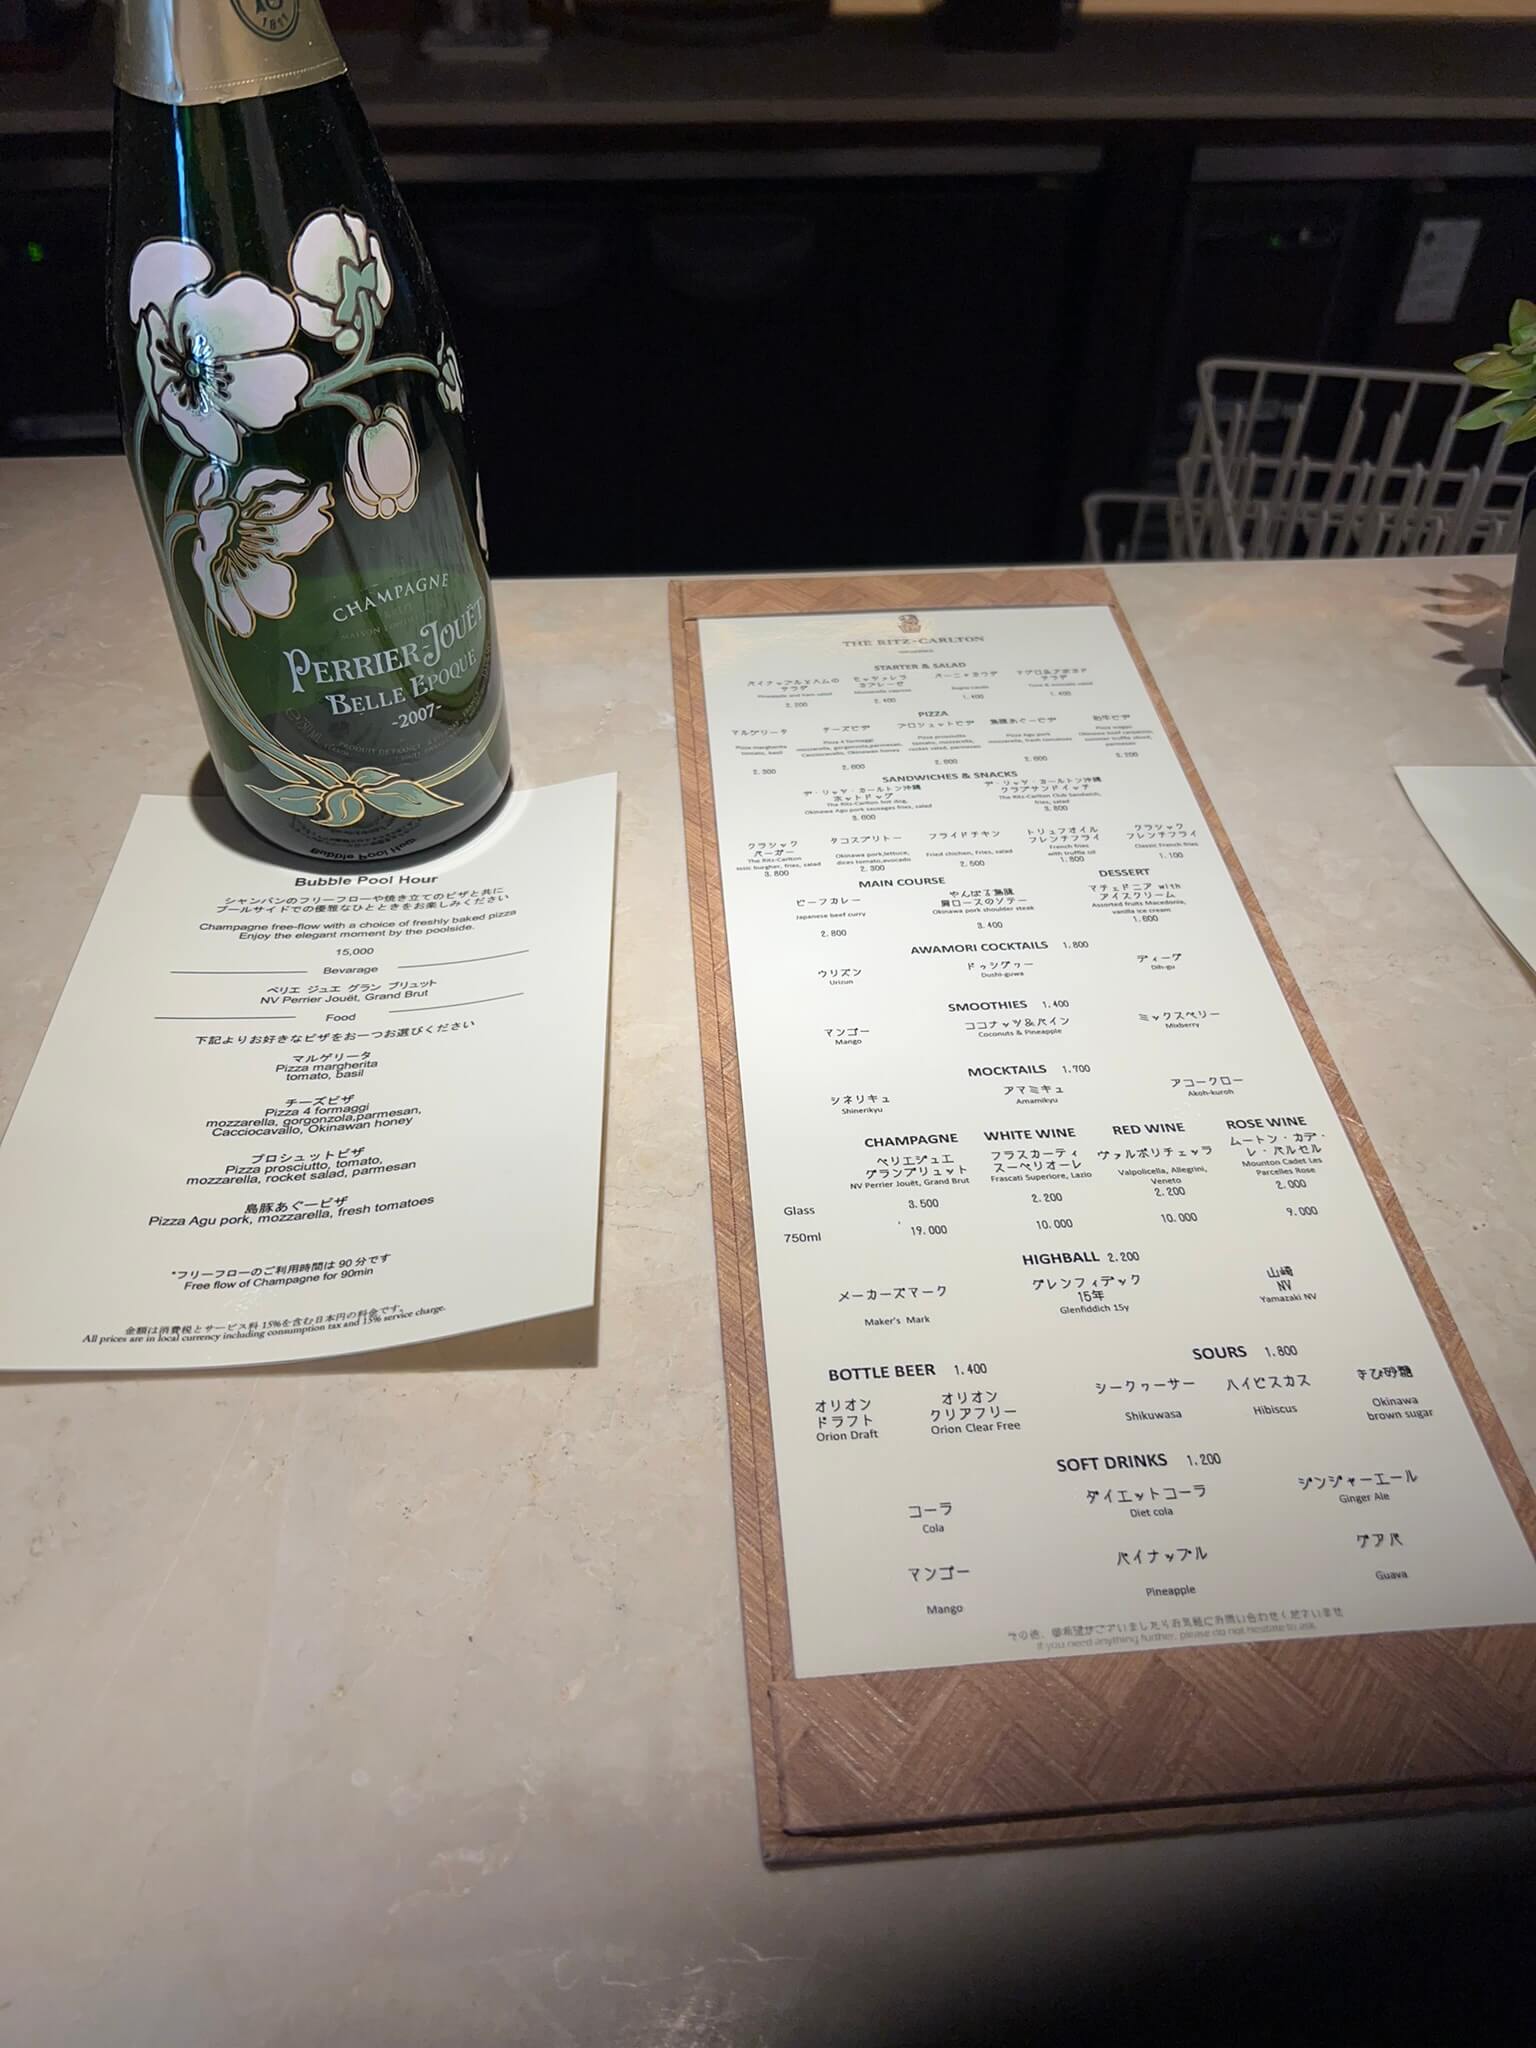 1811
CHAMPAGNE
PERRIER-JOUËT
BELLE EPOQUE
-2007-
PRODUIT DE FRANCE
Bubble Pool Hour
シャンパンのフリーフローや焼き立てのピザと共に
プールサイドでの優雅なひとときをお楽しみください
Champagne free-flow with a choice of freshly baked pizza
Enjoy the elegant moment by the poolside.
15,000
Bevarage
ペリエ ジュエ グラン ブリュット
NV Perrier Jouët, Grand Brut
Food
下記よりお好きなピザをお一つお選びください
マルゲリータ
Pizza margherita
tomato, basil
チーズピザ
Pizza 4 formaggi
mozzarella, gorgonzola,parmesan,
Cacciocavallo, Okinawan honey
プロシュットピザ
Pizza prosciutto, tomato,
mozzarella, rocket salad, parmesan
島豚あぐーピザ
Pizza Agu pork, mozzarella, fresh tomatoes
*フリーフローのご利用時間は 90 分です
Free flow of Champagne for 90min
金額は消費税とサービス料 15%を含む日本円の料金です。
All prices are in local currency including consumption tax and 15% service charge.
THE RITZ-CARLTON
STARTER & SALAD
パイナップルとハムの サラダ モッツァレラ カプレーゼ バーニャカウダ マグロ&アボカド サラダ
Pineapple and ham salad Mozzarella caprese Bagna cauda Tuna & avocado salad
2.200 2.400 1.400 1.400
PIZZA
マルゲリータ チーズピザ プロシュットピザ 島豚あぐーピザ 和牛ピザ
Pizza margherita tomato, basil
Pizza 4 formaggi mozzarella, gorgonzola,parmesan, Cacciocavallo, Okinawan honey
Pizza prosciutto tomato, mozzarella, rocket salad, parmesan
Pizza Agu pork mozzarella, fresh tomatoes
Pizza wagyu Okinawa beef carpaccio, summer truffle, chord, parmesan
2.300 2.600 2.600 2.600 3.200
SANDWICHES & SNACKS
ザ・リッツ・カールトン沖縄 ホットドッグ ザ・リッツ・カールトン沖縄 クラブサンドイッチ
The Ritz-Carlton hot dog, Okinawa Agu pork sausages fries, salad
The Ritz-Carlton Club Sandwich, fries, salad
3.600 3.800
クラシック バーガー タコスブリトー フライドチキン トリュフオイル フレンチフライ クラシック フレンチフライ
The Ritz-Carlton
assic burgher, fries, salad
Okinawa pork,lettuce, dices tomato,avocado
Fried chichen, Fries, salad
French fries with truffle oil
Classic French fries
3.800 2.300 2.500 1.800 1.100
MAIN COURSE DESSERT
ビーフカレー やんばる島豚 肩ロースのソテー マチェドニア with アイスクリーム
Japanese beef curry Okinawa pork shoulder steak Assorted fruits Macedonia, vanilla ice cream
2.800 3.400 1.600
AWAMORI COCKTAILS 1.800
ウリズン ドゥシグヮー ディーグ
Urizun Dushi-guwa Dih-gu
SMOOTHIES 1.400
マンゴー ココナッツ&パイン ミックスベリー
Mango Coconuts & Pineapple Mixberry
MOCKTAILS 1.700
シネリキュ アマミキュ アコークロー
Shinerikyu Amamikyu Akoh-kuroh
CHAMPAGNE WHITE WINE RED WINE ROSE WINE
ペリエジュエ グランブリュット フラスカーティ スーペリオーレ ヴァルポリチェッラ ムートン・カデ・ レ・パルセル
NV Perrier Jouët, Grand Brut Frascati Superiore, Lazio Valpolicella, Allegrini, Veneto Mounton Cadet Les Parcelles Rose
Glass 3.500 2.200 2.200 2.000
750ml 19.000 10.000 10.000 9.000
HIGHBALL 2.200
メーカーズマーク グレンフィディック 15年 山崎 NV
Maker's Mark Glenfiddich 15y Yamazaki NV
BOTTLE BEER 1.400
オリオン ドラフト オリオン クリアフリー
Orion Draft Orion Clear Free
SOURS 1.800
シークヮーサー ハイビスカス きび砂糖
Shikuwasa Hibiscus Okinawa brown sugar
SOFT DRINKS 1.200
コーラ ダイエットコーラ ジンジャーエール
Cola Diet cola Ginger Ale
マンゴー パイナップル グアバ
Mango Pineapple Guava
その他、御希望がございましたらお気軽にお問い合わせくださいませ
If you need anything further, please do not hesitate to ask.